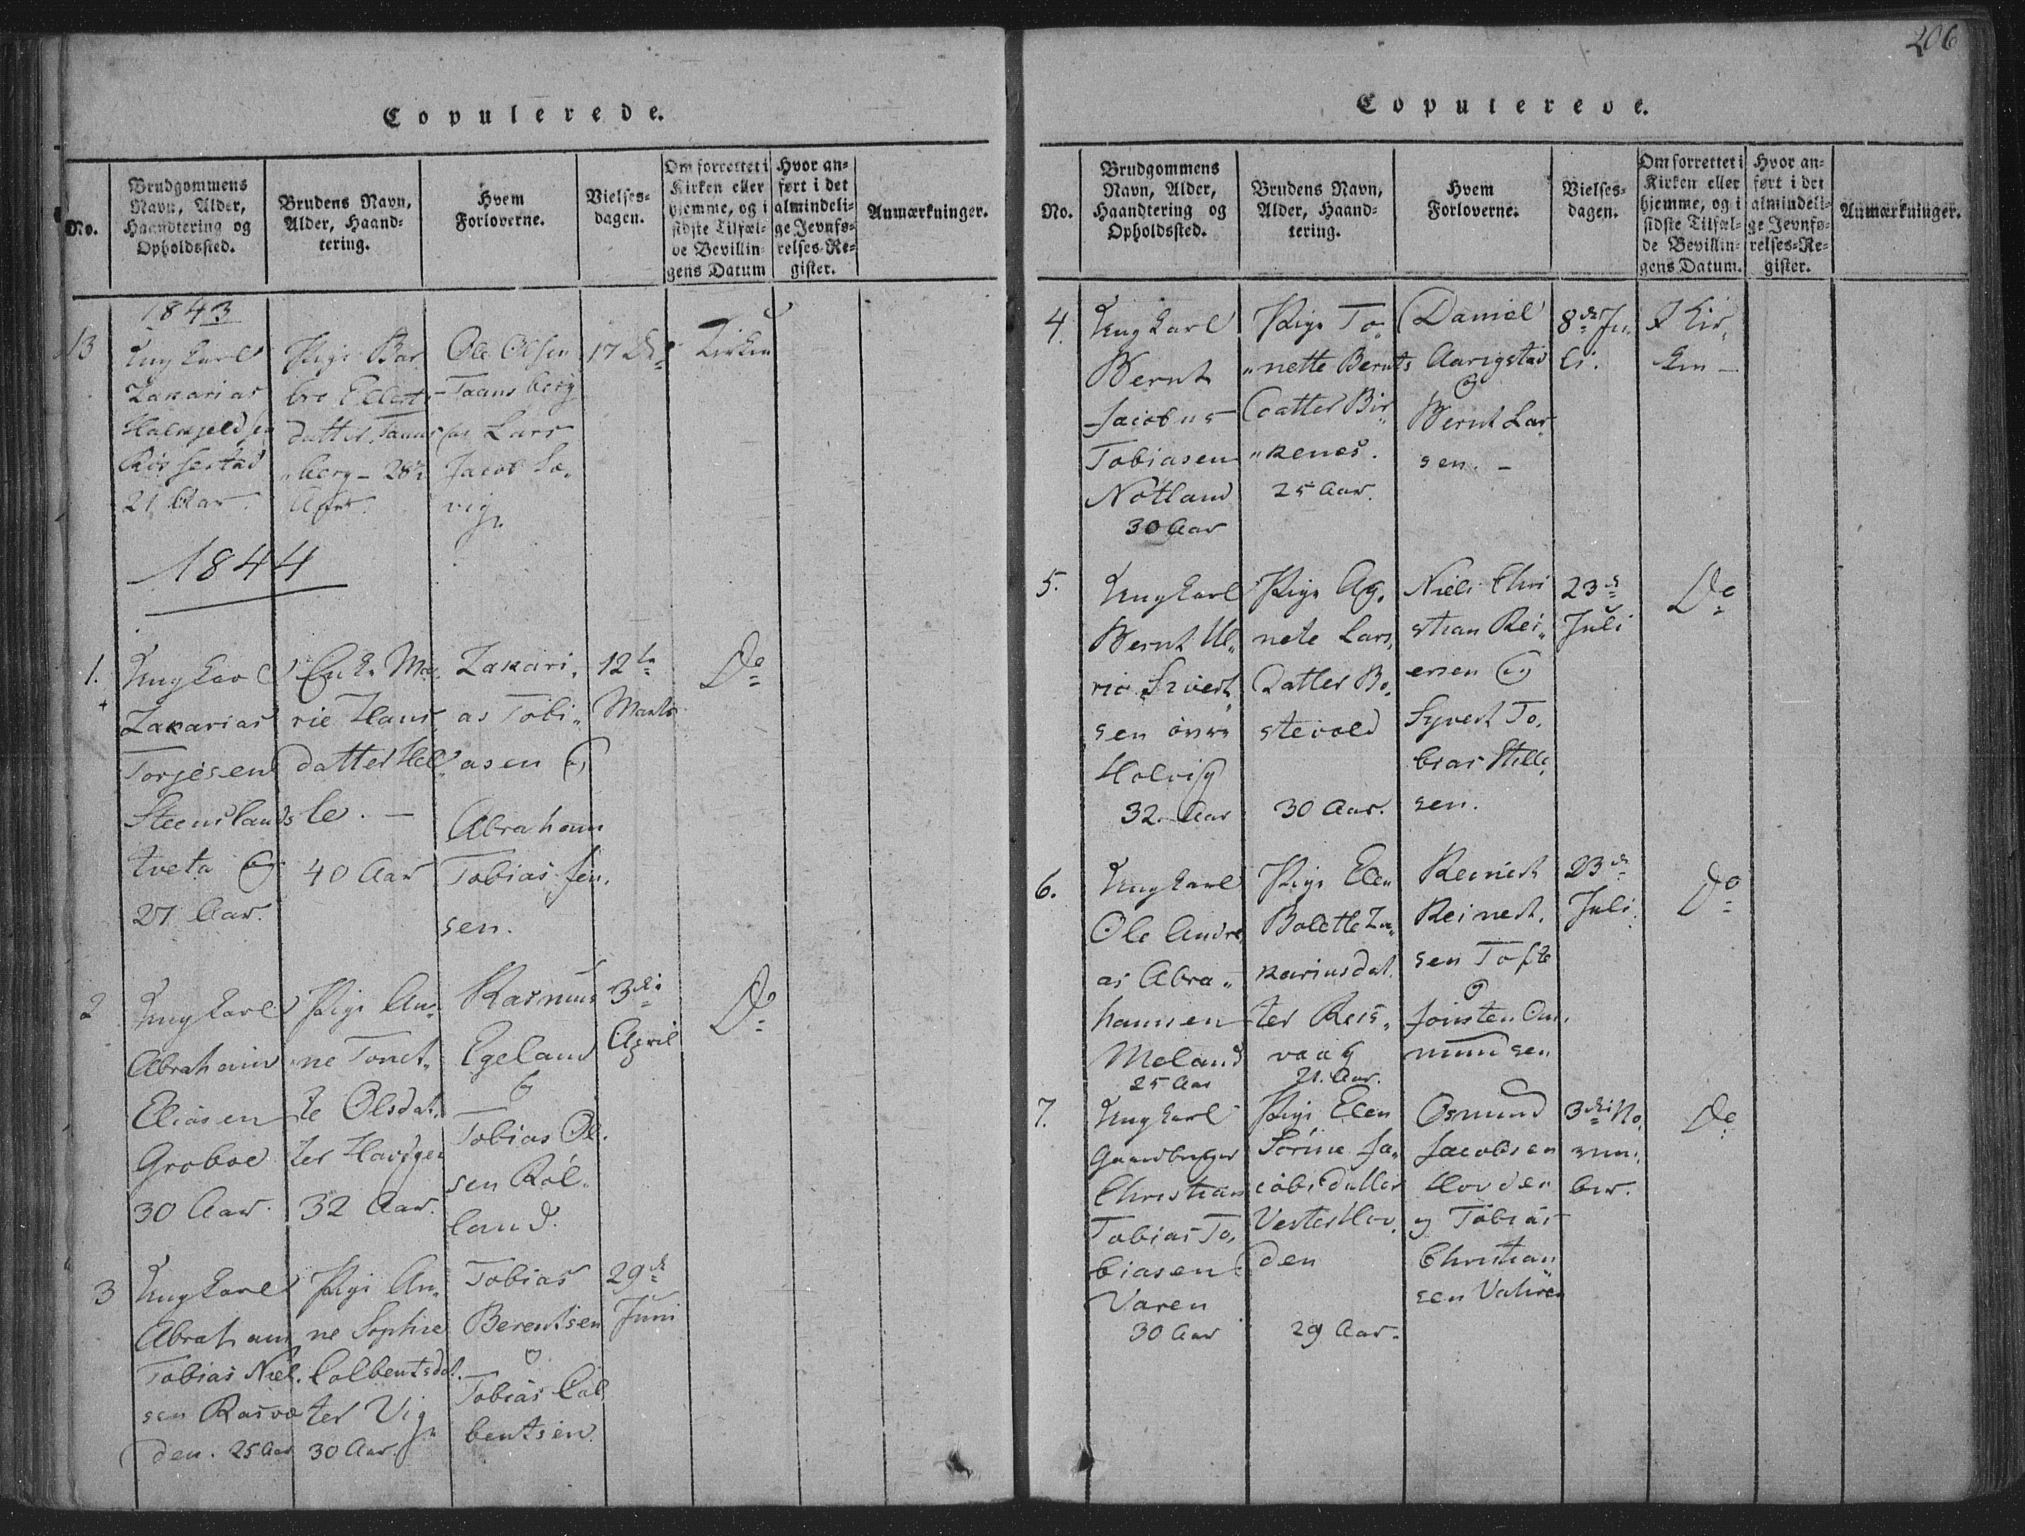 206
Copulerede.
No.
Brudgommens
Navn, Alder,
Haandtering og
Opholdssted.
Brudens Navn,
Alder, Haand-
tering.
Hvem
Forloverne.
Vielses-
dagen.
Om forrettet i
Kirken eller
hjemme, og i
sidste Tilfæl-
de Bevillin-
gens Datum
Hvor an-
ført i det
almindeli-
ge Jevnfø-
relses-Re-
gister.
Anmærkninger.
1843
13
Ungkarl
Zakarias
21 Aar
Pige Bar
bro
datter Taans
berg - 28
Aar.
Ole Olsen
Taansberg
Lars
Jacob Sæ-
vig.
17
Kirken
1844
1.
Ungkarl
Zakarias
Torjesen
Steensland
tveta og
27 Aar.
Enke Ma-
rie Hans
datter Hel
le. —
40 Aar
Zakari-
as Tobi-
asen og
Abraham
Tobias Jen-
sen.
12te
Marts
Do
2
Ungkarl
Abraham
Eliasen
Groboe
30 Aar.
Pige An-
ne Tonet-
te Olsdat-
ter
32 Aar.
Rasmus
Egeland
og
Tobias Ol-
sen Røl-
land.
3die
April
Do
3
Ungkarl
Abraham
Tobias Niel-
sen Rasvo
den. 25 Aar
Pige An-
ne Sophie
Colbentsdat-
ter Vig
30 Aar.
Tobias
Berentsen
og
Tobias Col
bentsen.
29de
Juni
Copulerede.
No.
Brudgommens
Navn, Alder,
Haandtering og
Opholdssted.
Brudens Navn,
Alder, Haand-
tering.
Hvem
Forloverne.
Vielses-
dagen.
Om forrettet i
Kirken eller
hjemme, og i
sidste Tilfæl-
de Bevillin-
gens Datum.
Hvor an-
ført i det
almindeli-
ge Jevnfø-
relses-Re-
gister.
Anmærkninger.
4.
Ungkarl
Bernt
Jacobus
Tobiasen
Nötland
30 Aar
Pige To-
nette Bernts
Datter Bir-
kenes.
25 Aar.
Daniel
Aarigstad
og
Bernt Lar-
sen. —
8de Ju-
li.
I Kir-
ken —
5.
Ungkarl
Bernt Ul-
ric Sivert
sen övre
Holvig
32 Aar
Pige Ag-
nete Lars
Datter Bo-
stevold
30 Aar.
Niels Chri
stian Rei-
ersen og
Syvert To-
bias
sen.
23de
Juli
Do
6.
Ungkarl
Ole Andre
as Abra-
hamsen
Meland
25 Aar
Pige Elen
Bolette Za-
kariasdat-
ter Reis-
vaag
21. Aar.
Reinert
Reinert-
sen Tofte
og
Jonsten Om-
mundsen
23de
Juli.
Do
7.
Ungkarl
Gaardbruger
Christian
Tobias To-
biasen
Varen
30 Aar
Pige Elen
Sörine Ja-
cobsdatter
Vester Hov-
den
29 Aar.
Osmund
Jacobsen
Hovden
og Tobias
Christian
sen
3die No-
vem-
ber.
Do